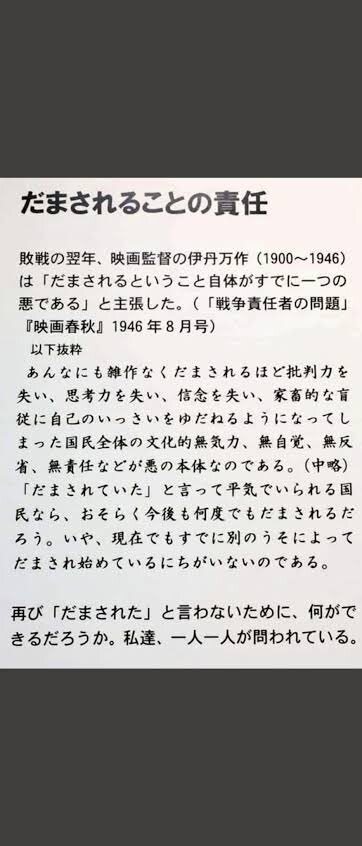 だまされることの責任
敗戦の翌年、映画監督の伊丹万作（1900～1946）
は「だまされるということ自体がすでに一つの
悪である」と主張した。（「戦争責任者の問題」
『映画春秋』1946年8月号）
以下抜粋
あんなにも雑作なくだまされるほど批判力を
失い、思考力を失い、信念を失い、家畜的な盲
従に自己のいっさいをゆだねるようになってし
まった国民全体の文化的無気力、無自覚、無反
省、無責任などが悪の本体なのである。（中略）
「だまされていた」と言って平気でいられる国
民なら、おそらく今後も何度でもだまされるだ
ろう。いや、現在でもすでに別のうそによって
だまされ始めているにちがいないのである。
再び「だまされた」と言わないために、何がで
きるだろうか。私達、一人一人が問われている。